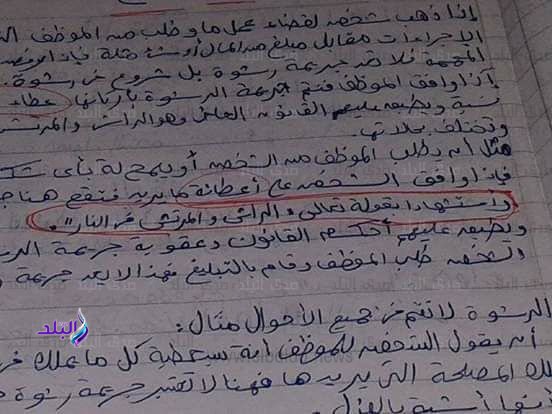 إذا ذهب شخص لقضاء عمل ما وطلب من الموظف
الإجراءات مقابل مبلغ من المال أو شئ مثلة فإذا
المهمة فلا تعد جريمة رشوة بل شروع في رشوة.
إذا وافق الموظف فتتم جريمة الرشوة بأركانها عطاء
ويطبق عليهم القانون العام وهو الراشى والمرتشى
وتختلف بدلاتها.
مثل أن يطلب الموظف من الشخص أو يمح لة بأى شكل
فإذا وافق الشخص على أعطائة ما يريد فتقع هنا
واستشهادا بقولة تعالى "الراشى والمرتشى فى النار".
ويطبق عليهم أحكام القانون وعقوبة جريمة
الشخص طلب الموظف وقام بالتبليغ فهنا لا تعد جريمة
الرشوة لا تتم فى جميع الأحوال مثال:
أن يقول الشخص للموظف أنه سيعطية كل ما يملك
المصلحة التى يريدها فهنا لا تعتبر جريمة رشوة
البلد
صدى البلد